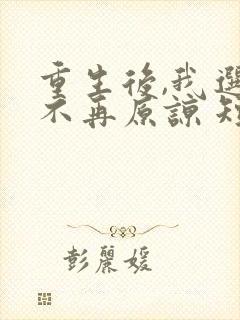 重生後,我選
不再原諒
彭麗媛